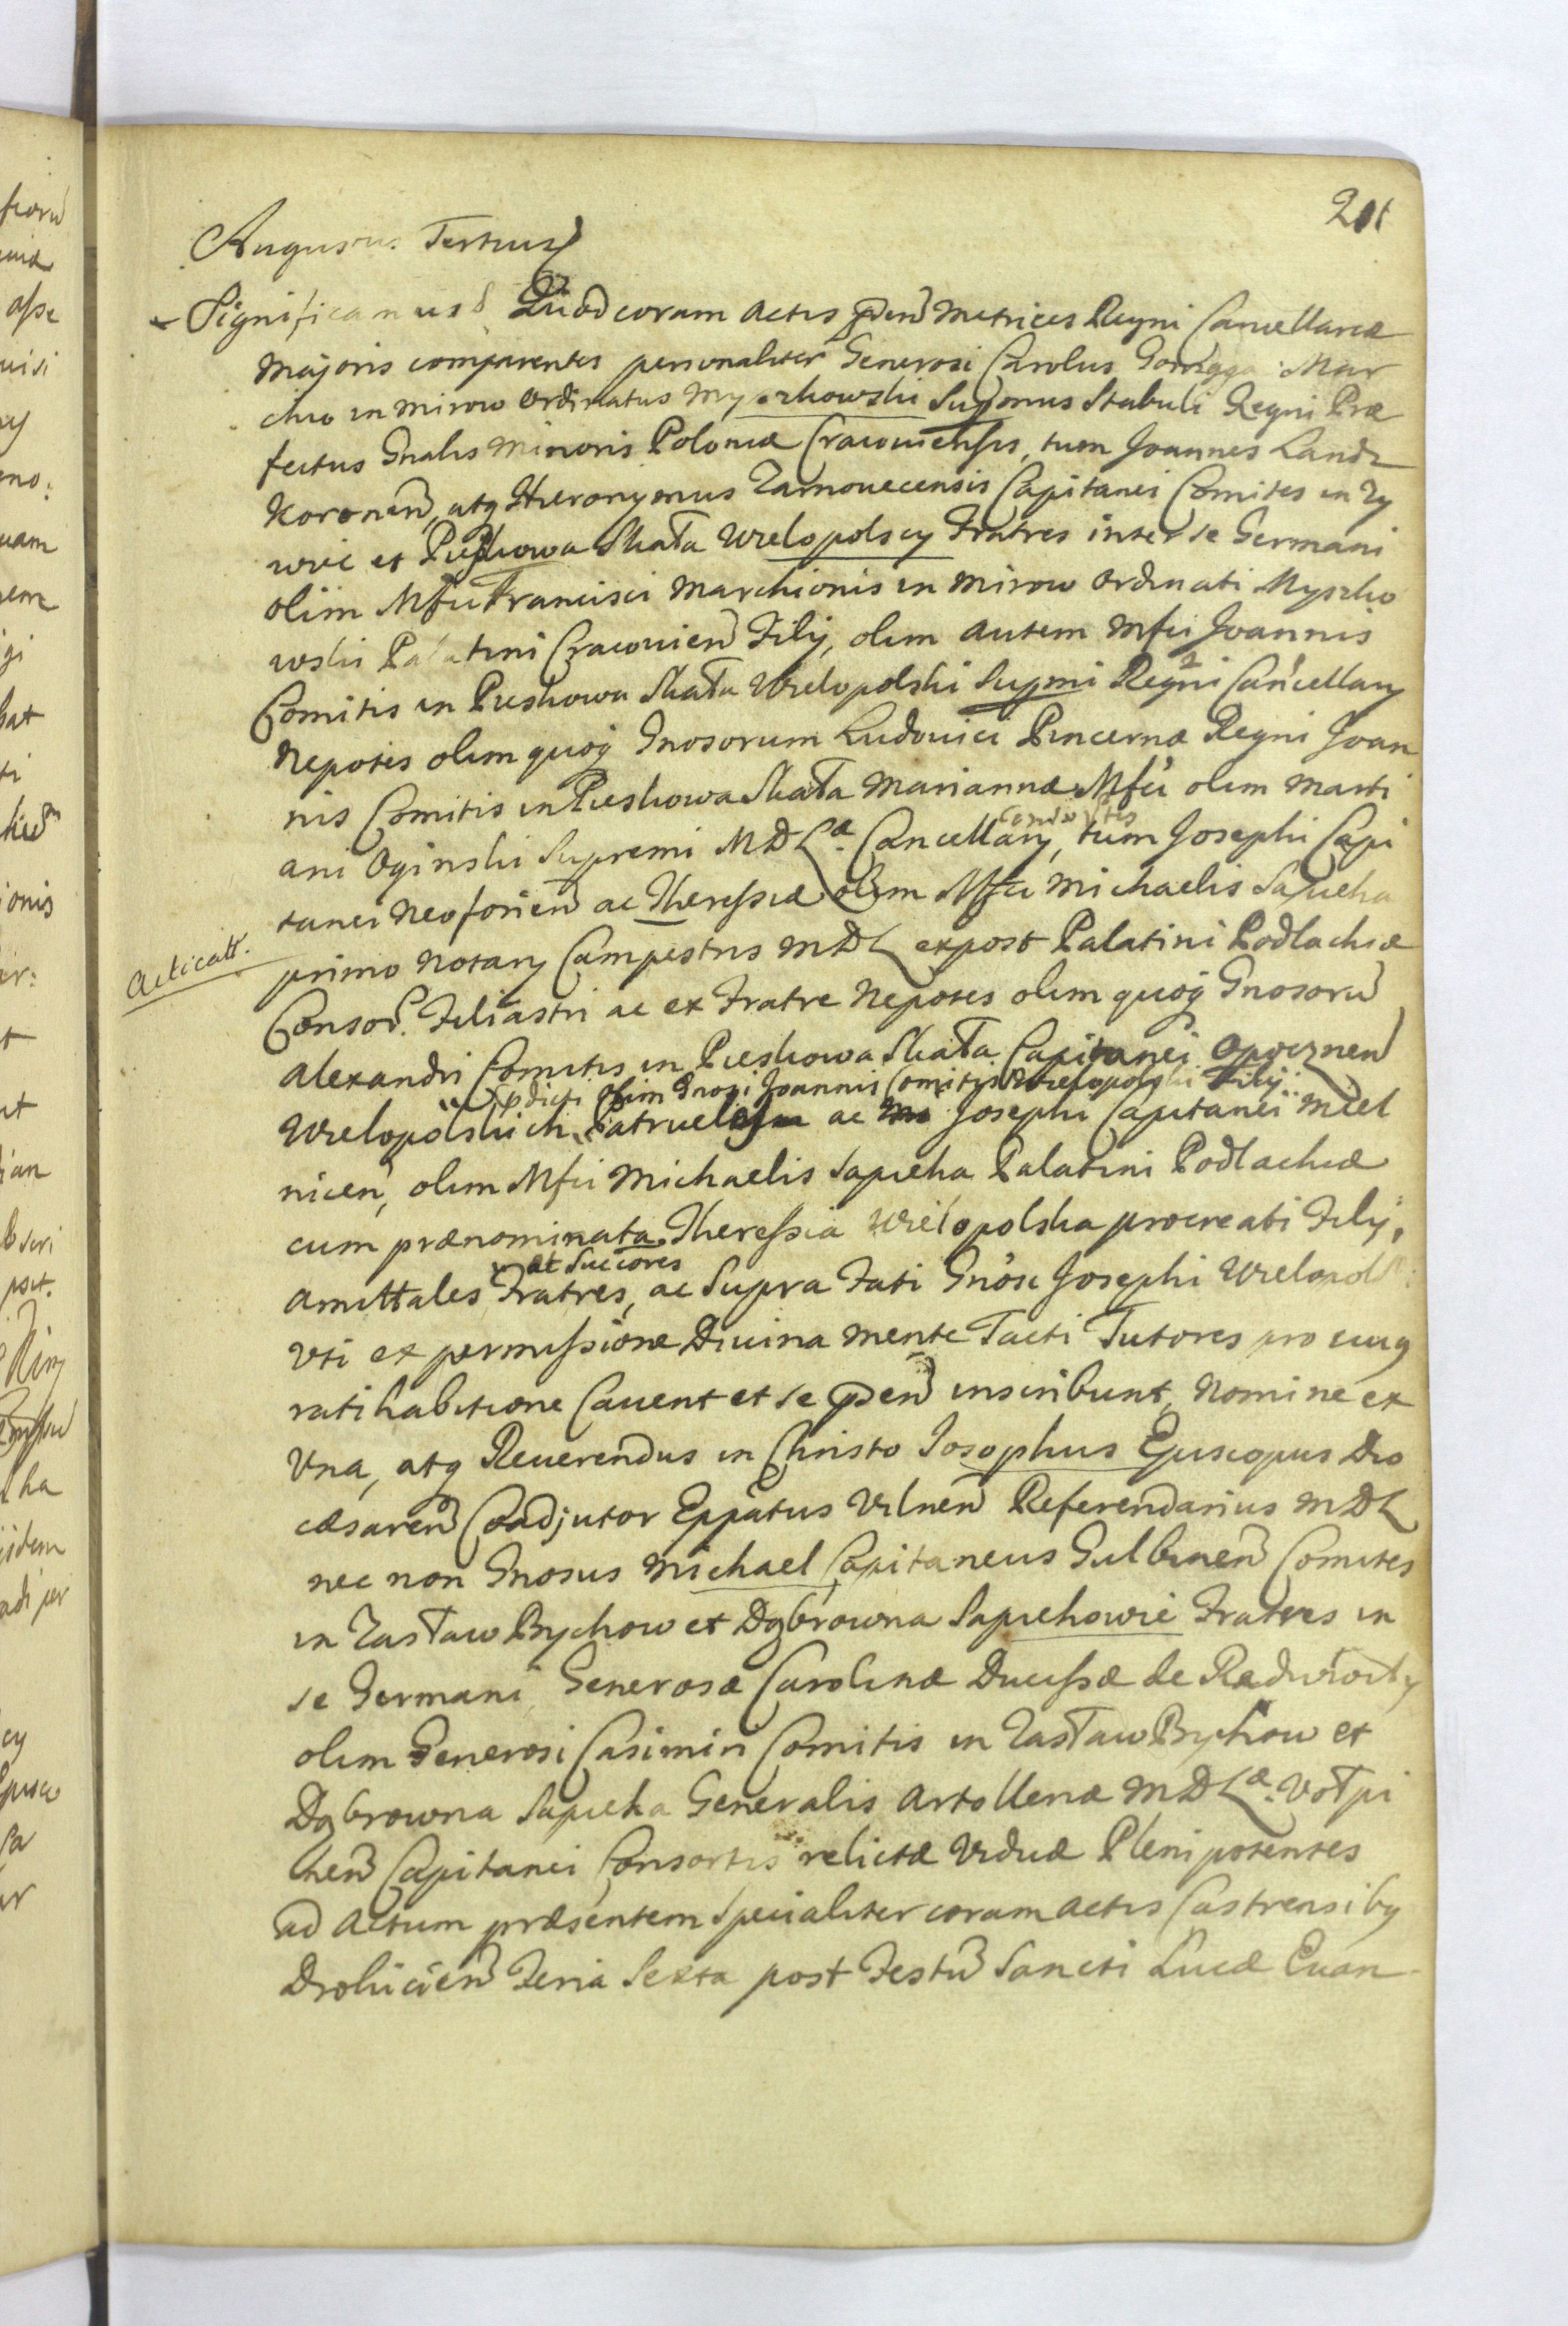 201
Augustus Tertius
Significamus & Quod coram Actis pſen Metrices Regni Cancellariæ
Majoris comparentes personaliter Generosi Carolus Gonzaga Mar
chio in Mirow Ordinatus Myszkowski Supmus Stabuli Regni Præ
fectus Gnalis Minoris Poloniæ Cracoviensis, tum Joannes Landz
Koronen, atq Hieronymus Zarnovecensis Capitanei Comites in Zy
wiec et Pieskowa Skała Wielopolscy Fratres inter se Germani
olim Mfci Francisci Marchionis in Mirow Ordinati Myszko
wski Palatini Cracovien Filij, olim autem Mfci Joannis
Comitis in Pieskowa Skała Wielopolski Supmi Regni Cancellarij
Nepotes olim quoq Gnosorum Ludovici Pincernæ Regni Joan
nis Comitis in Pieskowa Skała Mariannæ Mfci olim Marti
ani Oginski Supremi MDLæ. Cancellarij Consortis, tum Josephi Capi
tanei Neoforien ac Theressiæ olim Mfci Michaelis Sapieha
Acticatt.
primo Notarij Campestris MDL expost Palatini Podlachiæ
Consor. Filiastri ac ex Fratre Nepotes olim quoq Gnosoru
Alexandri Comitis in Pieskowa Skała Capitanei Opocznen
pdicti olim Gnosi Joannis Comitis Wielopolski Filij
Wielopolskich Patrueles ac Josephi Capitanei Miel
nicen, olim Mfci Michaelis Sapieha Palatini Podlachiæ
cum prænominata Theressia Wielopolska procreati Filij,
et Succores
Amittales Fratres, ac Supra Fati Gnosi Josephi Wielopol
uti ex permissione Divina mente Tacti Tutores pro cuiq
ratihabitione Cavent et se pſen inscribunt, Nomine et
Una, atq Reverendus in Christo Josophus Episcopus Dio
cæsaren Coadjutor Eppatus Vilnen Referendarius MDL
nec non Gnosus Michael Capitaneus Gulbinen Comites
in Zasław Bychow et Dąbrowna Sapiehowie Fratres in
se Germani Generosæ Carolinæ Ducissæ de Radwiłły
olim Generosi Casimiri Comitis in Zasław Bychow et
Dąbrowna Sapieha Generalis Artolleriæ MDLæ. Vołpi
nen Capitanei Consortis relictæ Viduæ Plenipotentes
ad Actum præsentem Specialiter coram Actis Castrensibq
Drohicien Feria Sexta post Festu Sancti Lucæ Evan